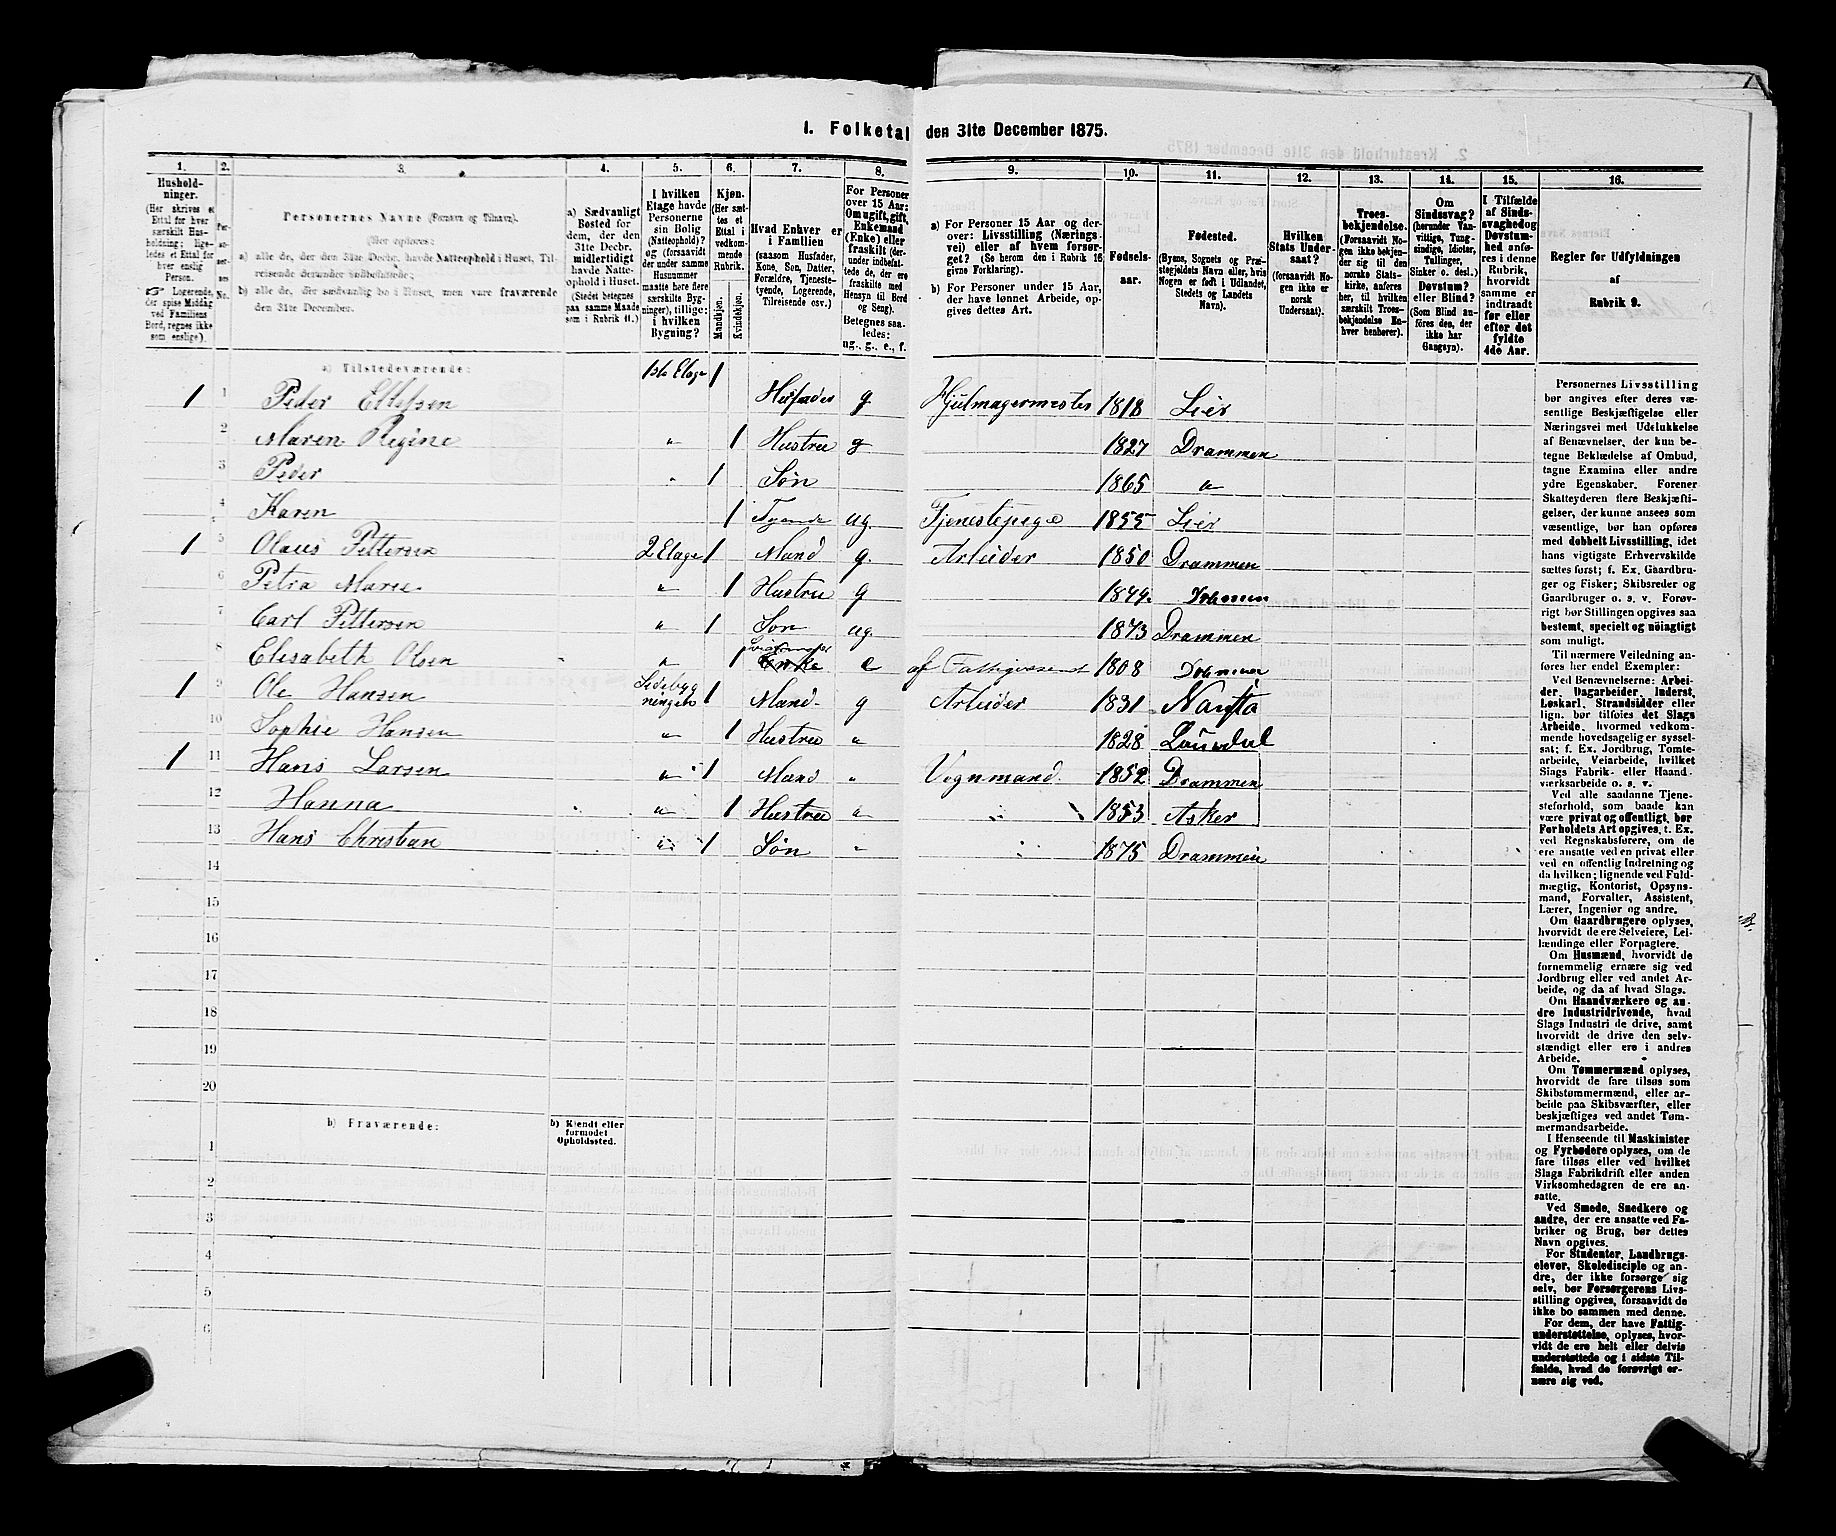 1. Folketal den 31te December 1875.
1. 2. 3. 4. 5. 6. 7. 8. 9. 10. 11. 12. 13. 14. 15. 16.
Hushold-
ninger.
(Her skrives et
Ettal for hver
særskilt Hus-
holdning; lige-
ledes et Ettal for
hver enslig
Person.
☞ Logerende,
der spise Middag
ved Familiens
Bord, regnes ikke
som enslige).
Per-
soner-
nes
No.
Personernes Navne (Fornavn og Tilnavn).
(Her opføres:
a) alle de, der den 31te Decbr. havde Natteophold i Huset, Til-
reisende derunder indbefattede;
b) alle de, der sædvanlig bo i Huset, men vare fraværende
den 31te December.
a) Sædvanligt
Bosted for
dem, der den
31te Decbr.
midlertidigt
havde Natte-
ophold i Huset.
(Stedet betegnes
paa samme Maade
som i Rubrik 11.)
I hvilken
Etage havde
Personerne
sin Bolig
(Natteophold)?
og (forsaavidt
der under samme
Husnummer
maatte høre flere
særskilte Byg-
ninger), tillige:
i hvilken
Bygning?
Kjøn.
(Her sæt-
tes et
Ettal i
vedkom-
mende
Rubrik.
Mandkjøn.
Kvindekjøn.
Hvad Enhver er
i Familien
(saasom Husfader,
Kone, Søn, Datter,
Forældre, Tjeneste-
tyende, Logerende,
Tilreisende osv.)
For Personer
over 15 Aar:
Om ugift, gift,
Enkemand
(Enke) eller
fraskilt (der-
under indbefat-
tede de, der ere
fraskilte med
Hensyn til Bord
og Seng).
Betegnes saa-
ledes:
ug., g., e., f.
a) For Personer 15 Aar og der-
over: Livsstilling (Nærings-
vei) eller af hvem forsør-
get? (Se herom den i Rubrik 16
givne Forklaring).
b) For Personer under 15 Aar,
der have lønnet Arbeide, op-
gives dettes Art.
Fødsels-
aar.
Fødested.
(Byens, Sognets og Præ-
stegjeldets Navn eller, hvis
Nogen er født i Udlandet,
Stedets og Landets
Navn).
Hvilken
Stats Under-
saat?
(forsaavidt No-
gen ikke er
norsk
Undersaat).
Troes-
bekjendelse.
(Forsaavidt No-
gen ikke bekjen-
der sig til den
norske Stats-
kirke, anføres
her, til hvilken
særskilt Troes-
bekjendelse En-
hver henhører).
Om
Sindssvag?
(herunder Van-
vittige, Tung-
sindige, Idioter,
Tullinger,
Sinker o. desl.)
Døvstum?
eller Blind?
(Som Blind an-
føres den, der
ikke har
Gangsyn).
I Tilfælde
af Sinds-
svaghed og
Døvstum-
hed anfø-
res i denne
Rubrik,
hvorvidt
samme er
indtraadt
før eller
efter det
fyldte
4de Aar.
Regler for Udfyldningen
af
Rubrik 9.
a) Tilstedeværende:
1 1 Peder Ellefsen 1ste Etage 1 Husfader g Hjulmagermester 1818 Lier
2 Maren Regine " 1 Hustru g 1827 Drammen
3 Peder " 1 Søn 1865 "
4 Karen 1 Tyende ug. Tjenestepige 1855 Lier
1 5 Olaus Pettersen 2 Etage 1 Mand g. Arbeider 1850 Drammen
6 Petra Marie " 1 Hustru g 1849
7 Carl Pettersen " 1 Søn ug. 1873 Drammen
8 Elisabeth Olsen " 1 Enke e af Fattigvæsenet 1808
1 9 Ole Hansen Sidebyg
ningen 1 Mand g Arbeider 1831
10 Sophie Hansen " 1 Hustru " 1828
1 11 Hans Larsen " 1 Mand " Vognmand 1852 Drammen
12 Hanna " 1 Hustru " 1853 Asker
13 Hans Christian " 1 Søn " 1875 Drammen
14
15
16
17
18
19
20
b) Fraværende:
b) Kjendt eller
formodet
Opholdssted.
1
2
3
4
5
6
Personernes Livsstilling
bør angives efter deres væ-
sentlige Beskjæftigelse eller
Næringsvei med Udelukkelse
af Benævnelser, der kun be-
tegne Beklædelse af Ombud,
tagne Examina eller andre
ydre Egenskaber. Forener
Skatteyderen flere Beskjæfti-
gelser, der kunne ansees som
væsentlige, bør han opføres
med dobbelt Livsstilling, idet
hans vigtigste Erhvervskilde
sættes først; f. Ex. Gaardbru-
ger og Fisker; Skibsreder og
Gaardbruger o. s. v. Forøv-
rigt bør Stillingen opgives saa
bestemt, specielt og nöiagtigt
som muligt.
Til nærmere Veiledning an-
føres her endel Exempler:
Ved Benævnelserne: Arbei-
der, Dagarbeider, Inderst,
Løskarl, Strandsidder eller
lign. bør tilføies det Slags
Arbeide, hvormed vedkom-
mende hovedsagelig er syssel-
sat; f. Ex. Jordbrug, Tomte-
arbeide, Veiarbeide, hvilket
Slags Fabrik- eller Haand-
værksarbeide o. s. v.
Ved alle saadanne Tjene-
steforhold, som baade kan
være privat og offentligt, bør
Forholdets Art opgives, f. Ex.
ved Regnskabsførere, om de
ere ansatte ved en privat eller
ved en offentlig Indretning og
da hvilken; lignende ved Fuld-
mægtig, Kontorist, Opsyns-
mand, Forvalter, Assistent,
Lærer, Ingeniør og andre.
Om Gaardbrugere oplyses,
hvorvidt de ere Selveiere, Lei-
lændinge eller Forpagtere.
Om Husmænd, hvorvidt de
fornemmelig ernære sig ved
Jordbrug eller ved andet Ar-
beide, og da af hvad Slags.
Om Haandværkere og an-
dre Industridrivende, hvad
Slags Industri de drive, samt
hvorvidt de drive den selv-
stændigt eller ere i andres
Arbeide.
Om Tømmermænd oplyses,
hvorvidt de fare tilsøs som
Skibstømmermænd, eller ar-
beide paa Skibsværfter, eller
beskjæftiges ved andet Tøm-
mermandsarbeide.
I Henseende til Maskinister
og Fyrbødere oplyses, om de
fare tilsøs eller ved hvilket
Slags Fabrikdrift eller anden
Virksomhedsgren de ere an-
satte.
Ved Smede, Snedkere og
andre, der ere ansatte ved Fa-
briker og Brug, bør dettes
Navn opgives.
For Studenter, Landbrugs-
elever, Skoledisciple og an-
dre, der ikke forsørge sig
selv, bør Forsørgerens Livs-
stilling opgives, forsaavidt de
ikke bo sammen med denne.
For dem, der have Fattig-
understøttelse, oplyses, hvor-
vidt de ere helt eller delvis
understøttede og i sidste Til-
fælde, hvad de forøvrigt er-
nære sig ved.